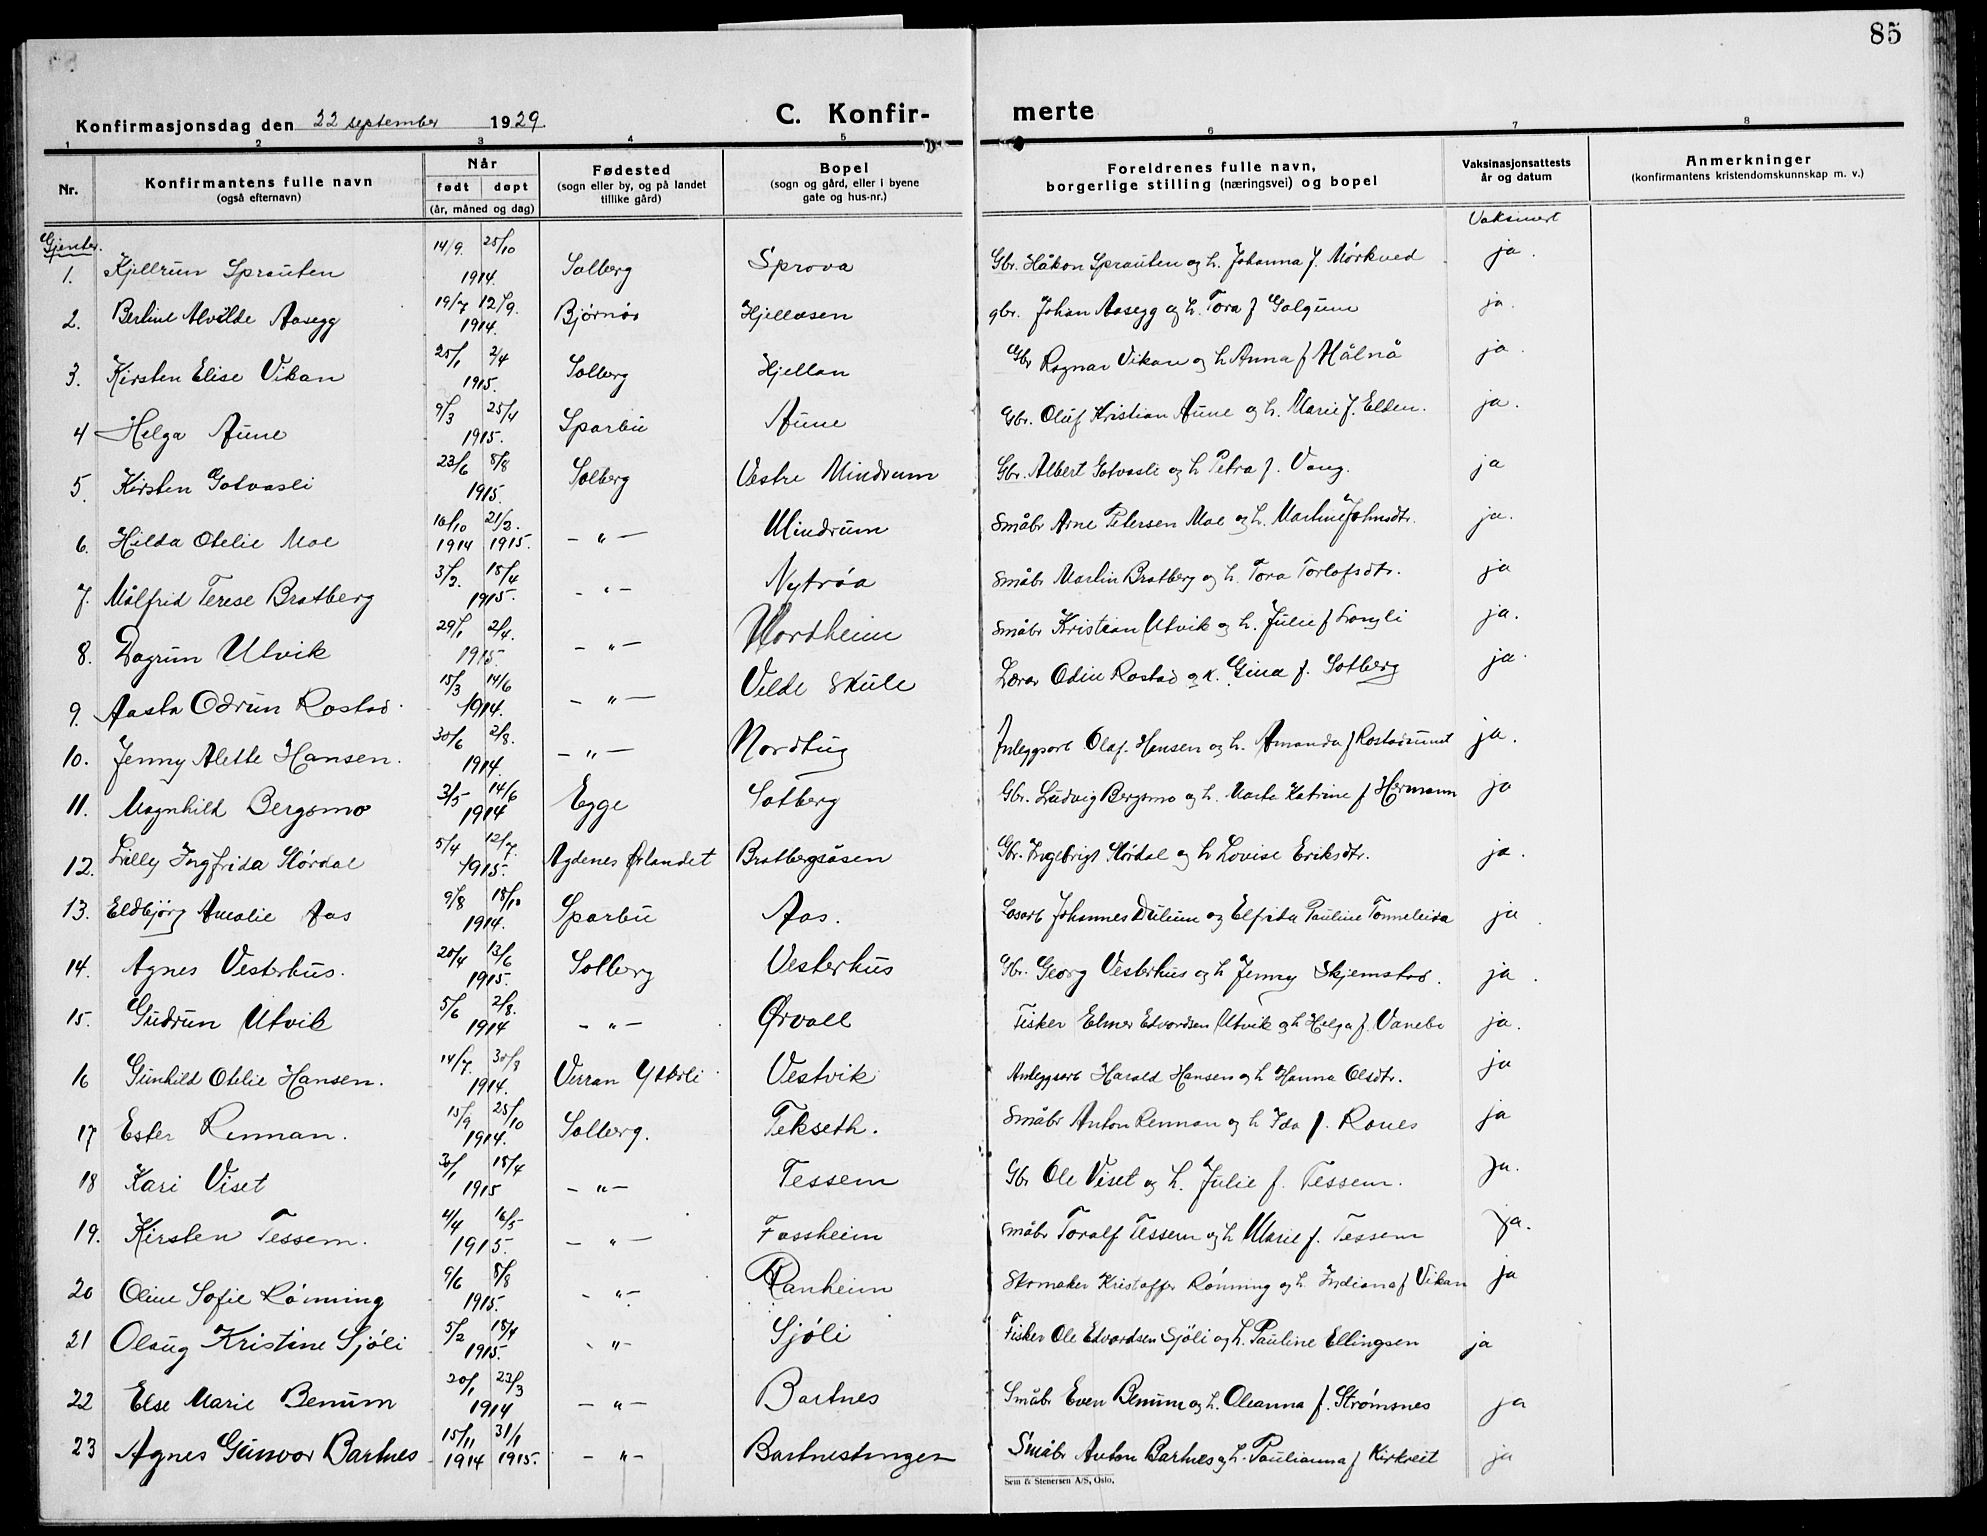 85
Konfirmasjonsdag den 22 september 1929.
C. Konfir-
merte
1 2 3 4 5 6 7 8
Nr.
Konfirmantens fulle navn
(også efternavn)
Når
født døpt
(år, måned og dag)
Fødested
(sogn eller by, og på landet
tillike gård)
Bopel
(sogn og gård, eller i byene
gate og hus-nr.)
Foreldrenes fulle navn,
borgerlige stilling (næringsvei) og bopel
Vaksinasjonsattests
år og datum
Anmerkninger
(konfirmantens kristendomskunnskap m. v.)
Vaksinert
Gjenter.
1. Kjellrun Sprauten 14/9. 25/10 1914. Solberg Sprova Gbr. Håkon Sprauten og h. Johanna f. Mørkved ja.
2. Berline Alvilde Aasegg 19/7 12/9. 1914. Bjørnør Hjellosen gbr. Johan Aasegg og h. Tora f Galgum ja.
3. Kirsten Elise Vikan 25/1 2/4 1915. Solberg Hjellan Gbr Ragnar Vikan og h Anna f Målnå ja.
4 Helga Aune 9/3 25/4 1915. Sparbu Aune Gbr. Oluf Kristian Aune og h. Marie f. Elden. ja.
5. Kirsten Gotvasli 23/6 8/8 1915. Solberg Vestre Mindrum Gbr. Albert Gotvasli og h Petra f. Vang. ja
6. Hilda Otelie Moe 16/10 21/2. 1914 1915. – " – Mindrum Småbr Arne Petersen Moe og h. Martine Johnsdtr. ja.
7. Målfrid Terese Bratberg 3/2. 18/4 1915. – " – Nytrøa Småbr Martin Bratberg og h. Tora Torlofsdtr. ja
8. Dagrun Utvik 29/1 2/4. 1915. – " – Nordheim Småbr Kristian Utvik og h. Julie f Langli ja.
9. Aasta Odrun Rostad. 15/3 14/6 1914. – " – Velde Skule Lærar Odin Rostad og k. Gina f. Solberg ja.
10. Jenny Alette Hansen. 30/6 2/8. 1914. – " – Nordtug Anleggsarb Olaf Hansen og h. Amanda f Rostadsunet ja.
11. Magnhild Bergsmo 3/5 14/6 1914 Egge Solberg Gbr. Ludvig Bergsmo og h. Marta Katrine f Hermann ja
12. Lilly Ingfrida Størdal 5/4 12/7. 1915. Agdenes Ørlandet Bratbergsåsen Gbr. Ingebrigt Størdal og h Lovise Eriksdtr. ja.
13. Eldbjørg Amalie Aas 9/8 18/10 1914. Sparbu Aas. Losarb Johannes Dulum og Elfrida Pauline Tonneleida ja.
14. Agnes Vesterhus. 20/4 13/6 1915. Solberg Vesterhus Gbr. Georg Vesterhus og h Jenny Skjemstad. ja.
15. Gudrun Utvik 5/6 2/8. 1914 – " – Ørvoll Fisker Elmer Edvardsen Utvik og h Helga f. Vanebo ja.
16 Gunhild Otelie Hansen. 14/7. 30/8 1914. Verran Ytterli Vestvik Anleggsarb Harald Hansen og h Hanna Olsdtr. ja
17 Ester Rennan. 15/9 25/10 1914. Solberg. Tekseth. Småbr Anton Rennan og h Ida f. Ranes ja
18 Kari Viset 30/1 18/4 1915 – " – Tessem Gbr Ole Viset og h. Julie f. Tessem. ja.
19. Kirsten Tessem. 4/4 16/5 1915. – " – Fossheim Småbr Toralf Tessem og h Marie f. Tessem ja.
20 Oline Sofie Rønning 9/6 8/8 1915. – " – Ranheim Skomaker Kristoffer Rønning og h. Indiana f Vikan ja
21 Olaug Kristine Sjøli 5/2 18/4 1915. – " – Sjøli Fisker Ole Edvardsen Sjöli og h. Pauline Ellingsen ja
22 Else Marie Benum 20/1 22/3 1914 – " – Bartnes Småbr Even Benum og h. Oleanna f. Strømsnes ja
23 Agnes Gunvor Bartnes 15/11 31/1 1914 1915. – " – Bartnestangen Småbr Anton Bartnes og h. Paulianna f Kirkreit ja
Sem & Stenersen A/S, Oslo.